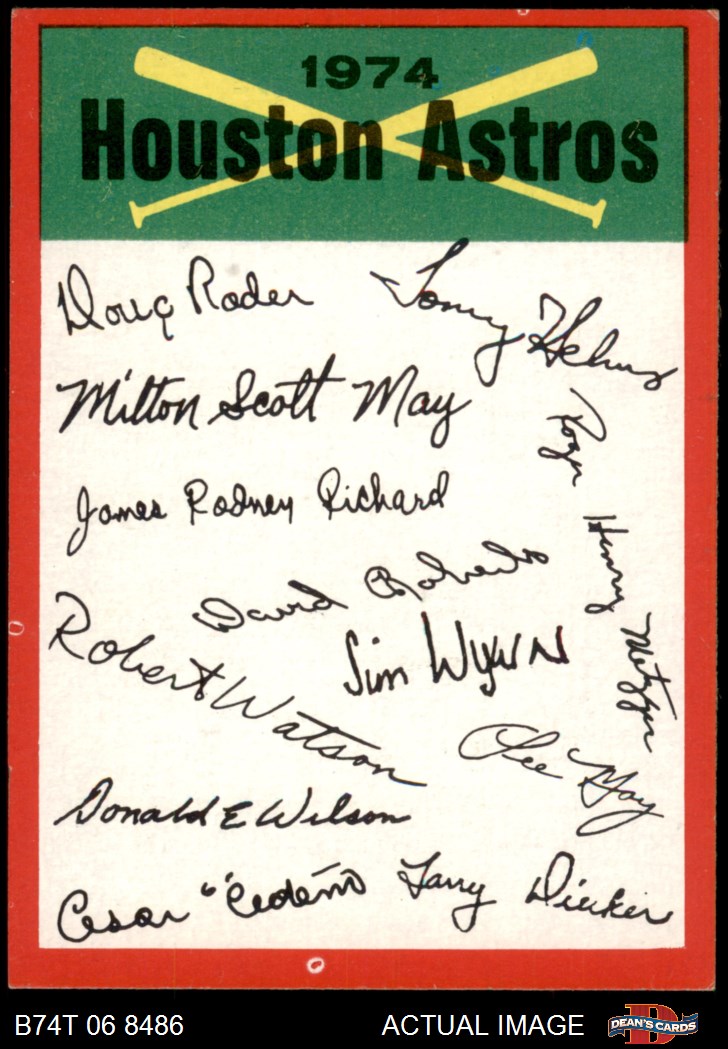 1974
Houston Astros
Doug Rader
Tommy Helms
Milton Scott May
Roger Henry Metzger
James Rodney Richard
David Roberts
Jim Wynn
Robert Watson
Lee May
Donald E Wilson
Cesar "Cedeño
Larry Dierker
B74T 06 8486
ACTUAL IMAGE
DEAN'S CARDS